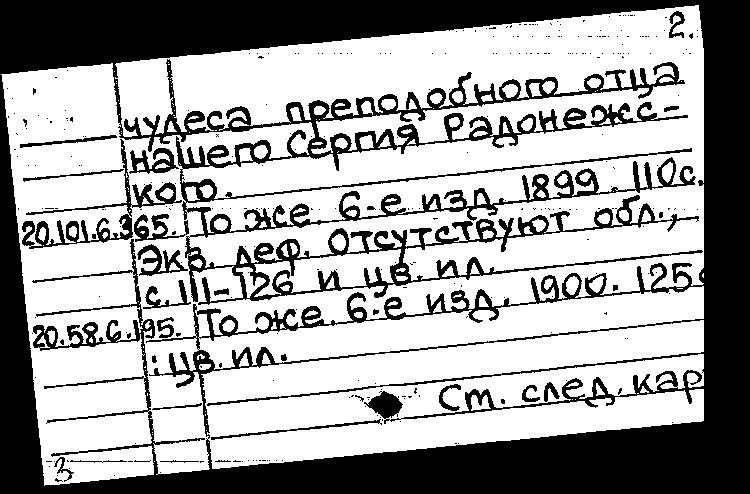 2.
чудеса преподобного отца
нашего Сергия Радонежс-
кого.
20.101.6.365. То же. 6-е изд. 1899. 110с.
Экз. деф. Отсутствуют обл.,
с. 111-126 и цв. ил.
20.58.6.195. То же. 6-е изд. 1900. 125с
: цв. ил.
Ст. след. кар
3